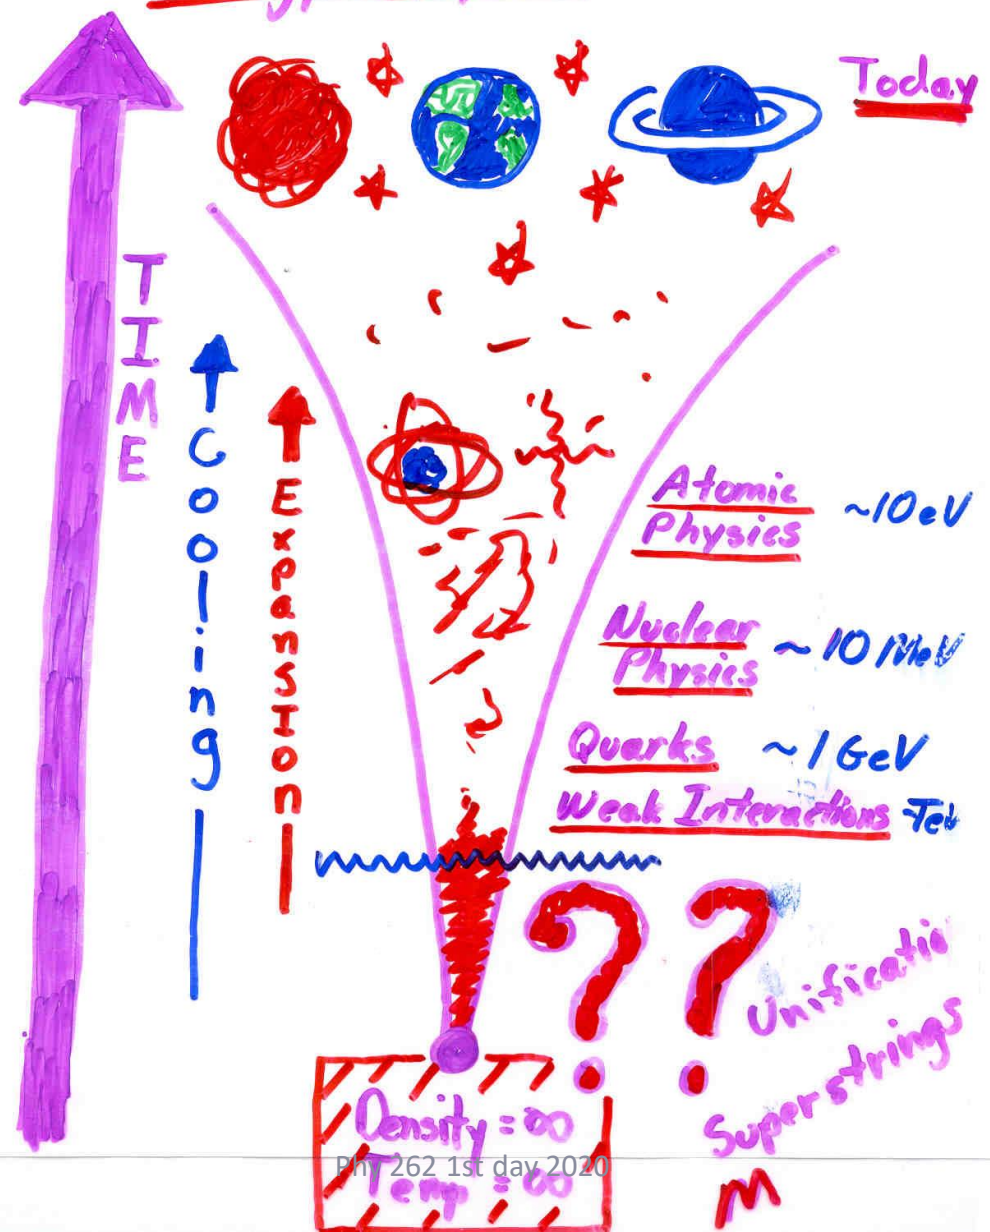 Today
TIME
Cooling
Expansion
Atomic
Physics
~10eV
Nuclear
Physics
~10 MeV
Quarks
~1 GeV
Weak Interactions
? ?
Unificatio
Superstrings
M
Density = ∞
Temp = ∞
Phy 262 1st day 2020